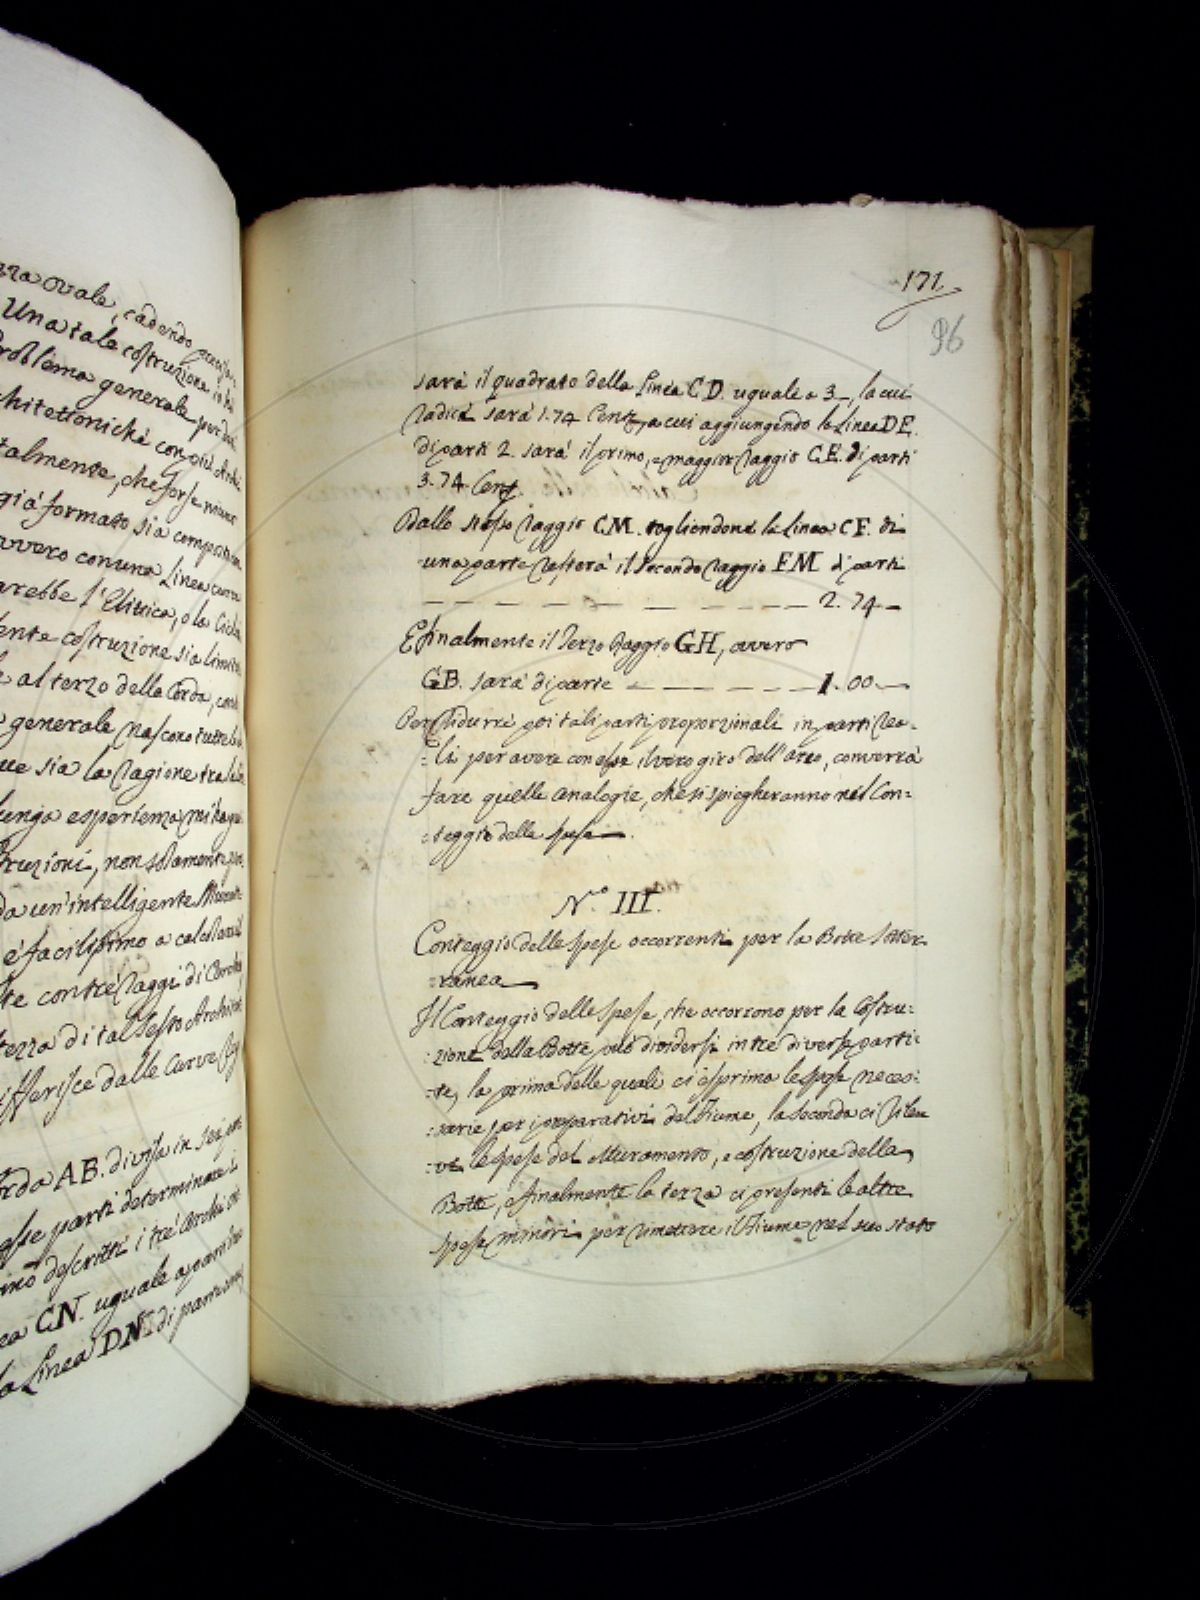 zza ovale, cadendo
Una tale costruzione
Problema generale per
chitettoniche con più Archi
talmente, che forse niuno
già formato sia
ovvero con una Linea curva
arebbe l'Elittica, o la
ente costruzione sia
al terzo della Corda,
generale nascono tutte
ue sia la ragione tra
unga esperienza mi
truzioni, non solamente
da un'intelligente
è facilissimo a
te con tré raggi di
tezza di tal Sesto
ifferisce dalle Curve
orda AB. divisa in
esse parti determinare
descritti i tré Archi
ea CN. uguale a
la Linea DN. di parte
171
96
sarà il quadrato della Linea CD. uguale a 3_, la cui
radice sarà 1.74 Cent., a cui aggiungendo la Linea DE.
di parti 2. sarà il primo, e maggior raggio CE. di parti
3.74 Cent.
Dallo stesso raggio CM. togliendone la Linea CF. di
una parte resterà il secondo raggio FM di parti
2.74_
E finalmente il Terzo Raggio GH, overo
GB. sarà di parte 1.00_
Per ridurre poi tali parti proporzionali in parti rea-
:li per avere con esse il vero giro dell'arco, converrà
fare quelle analogie, che si spiegheranno nel Con:
:teggio delle spese.
N.° III.
Conteggio delle spese occorrenti per la Botte Sotter
:ranea
Il Conteggio delle spese, che occorrono per la Costru:
:zione della Botte può dividersi in tre diverse parti:
:te, la prima delle quali ci esprima le spese neces:
:sarie per i preparativi del Fiume, la seconda ci rile
:vi le spese del Muramento, e costruzione della
Botte, e finalmente la terza ci presenti le altre
spese minori per rimettere il Fiume nel suo stato